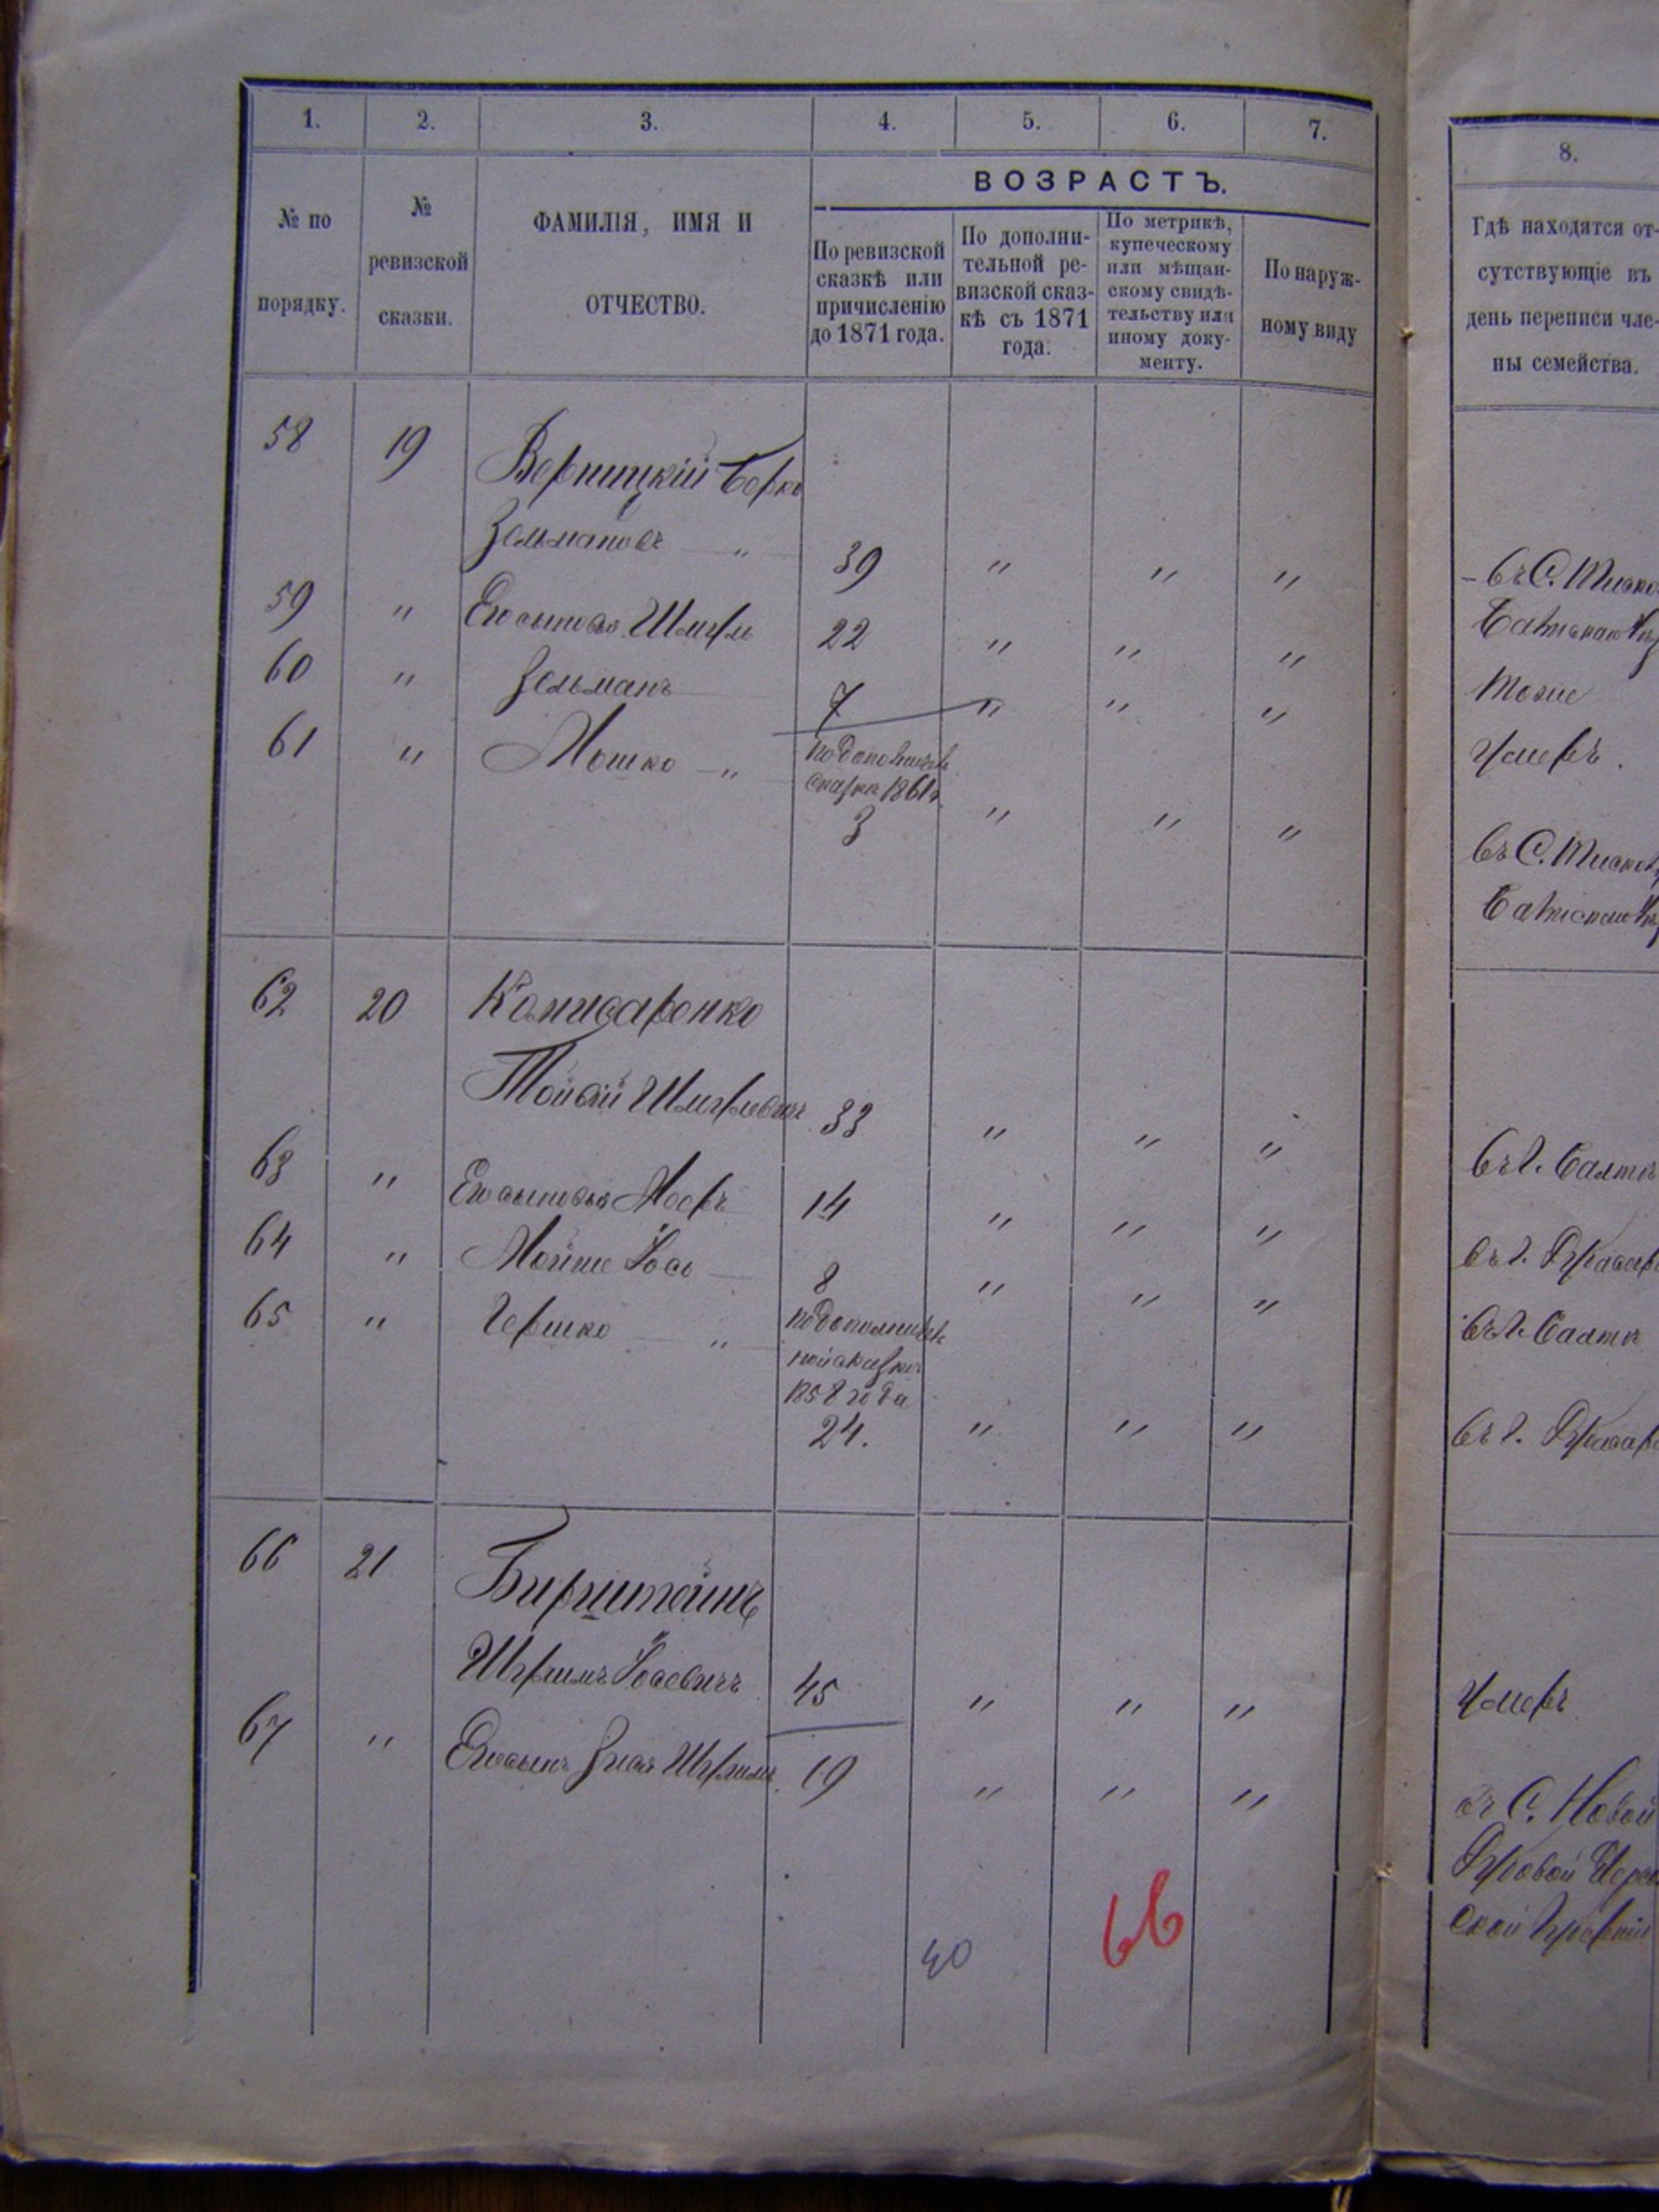 1. 2. 3. 4. 5. 6. 7.
ВОЗРАСТЪ.
№ по
порядку.
№
ревизской
сказки.
ФАМИЛІЯ, ИМЯ И
ОТЧЕСТВО.
По ревизской
сказкѣ или
причисленію
до 1871 года.
По дополни-
тельной ре-
визской сказ-
кѣ съ 1871
года.
По метрикѣ,
купеческому
или мѣщан-
скому свидѣ-
тельству или
иному доку-
менту.
По наруж-
ному виду
8.
Гдѣ находятся от-
сутствующіе въ
день переписи чле-
ны семейства.
58 19 Верницкій Берко
Зельмановъ " 39 " " " въ С.
59 " Его сыновья Шмуль 22 " " "
60 " Зельманъ 7 " " " Тоже
61 " Мошко " Умеръ.
сказкѣ 1861 г.
3 " " " въ С.
62 20 Комисаренко
Шмулевичъ 33 " " " въ г. Балтѣ
63 " Его сыновья Мееръ 14 " " " въ г.
64 " Мойше Іось 8 " " " въ г. Балтѣ
65 " Гершко " по дополнитель
ной сказкѣ
1858 года
24. " " " въ г.
66 21 Бирштейнъ
Іосевичъ 45 " " " Умеръ
67 " Его сынъ 19 " " " въ С. Новой
ской Губерніи
40
66